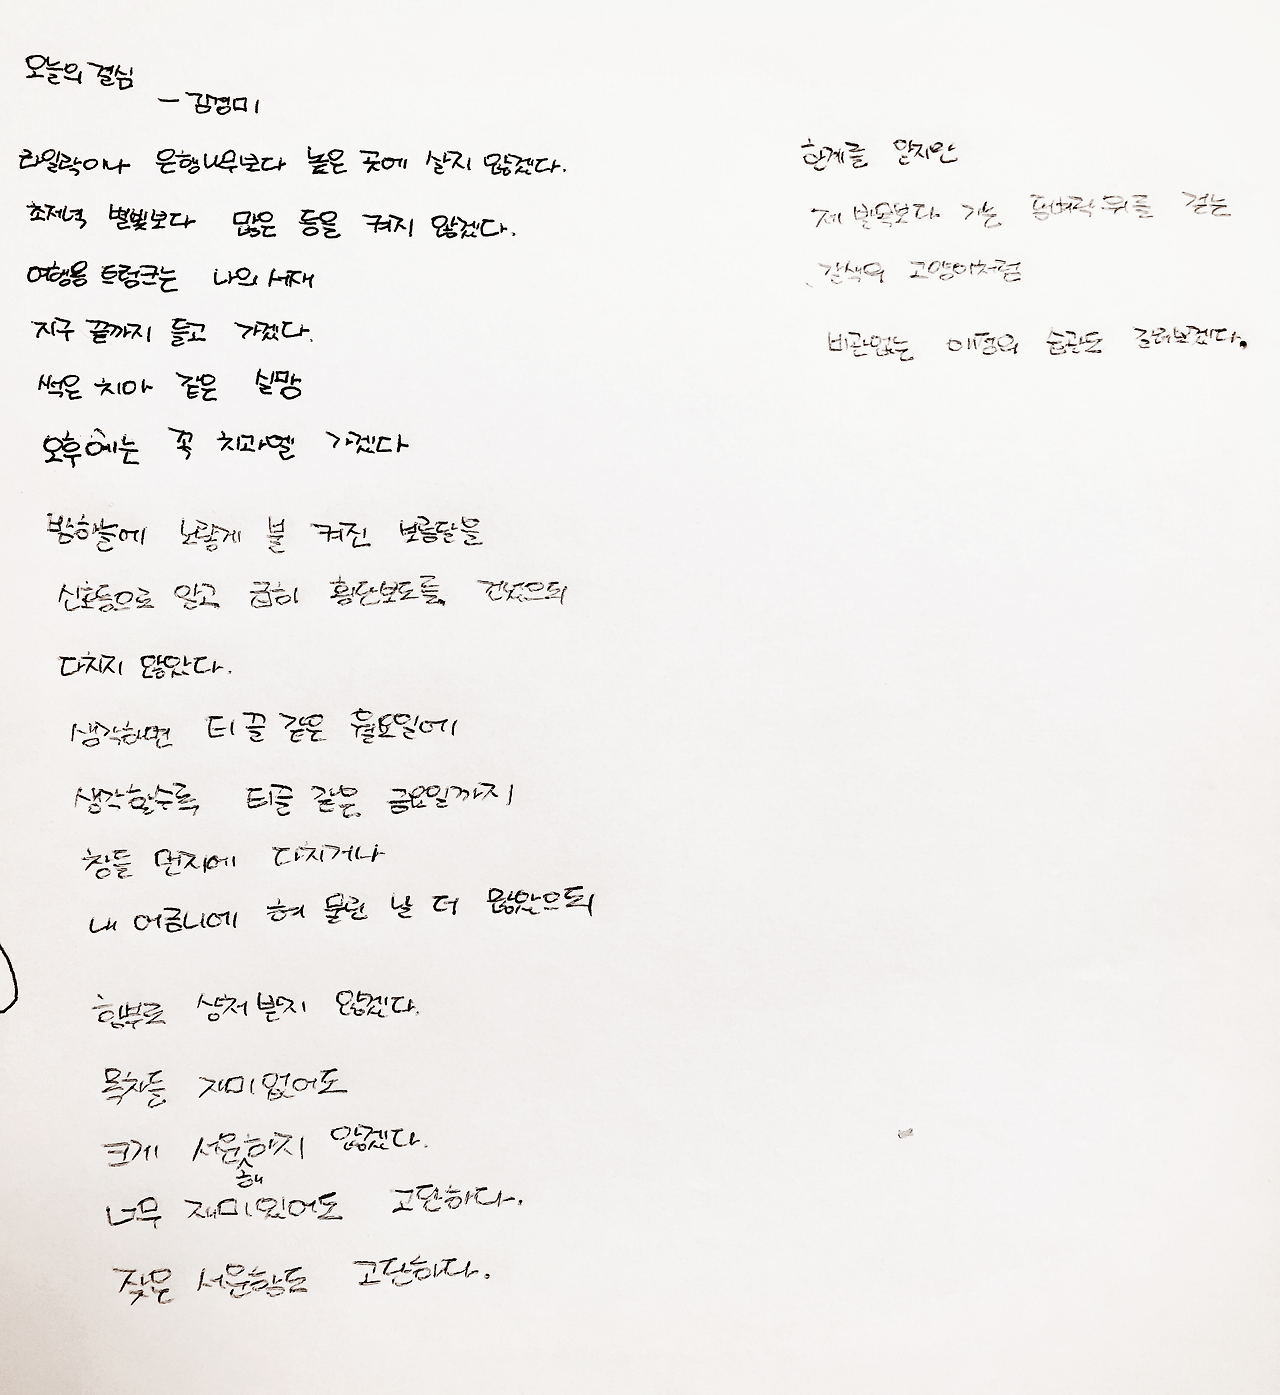 오늘의 결심
- 김경미
라일락이나 은행나무보다 높은 곳에 살지 않겠다.
초저녁 별빛보다 많은 등을 켜지 않겠다.
여행용 트렁크는 나의 서재
지구 끝까지 들고 가겠다.
썩은 치아 같은 실망
오후에는 꼭 치과엘 가겠다
밤하늘에 노랗게 불 켜진 보름달을
신호등으로 알고 급히 횡단보도를 건넜으되
다치지 않았다.
생각하면 티끌 같은 월요일에
생각할수록 티끌 같은 금요일까지
창틀 먼지에 다치거나
내 어금니에 혀 물린 날 더 많았으되
함부로 상처받지 않겠다.
목차들 재미없어도
크게 서운해하지 않겠다.
너무 재미있어도 고단하다.
잦은 서운함도 고단하다.
한계를 알지만
제 발목보다 가는 담벼락 위를 걷는
갈색의 고양이처럼
비관없는 애정의 습관도 길러보겠다.